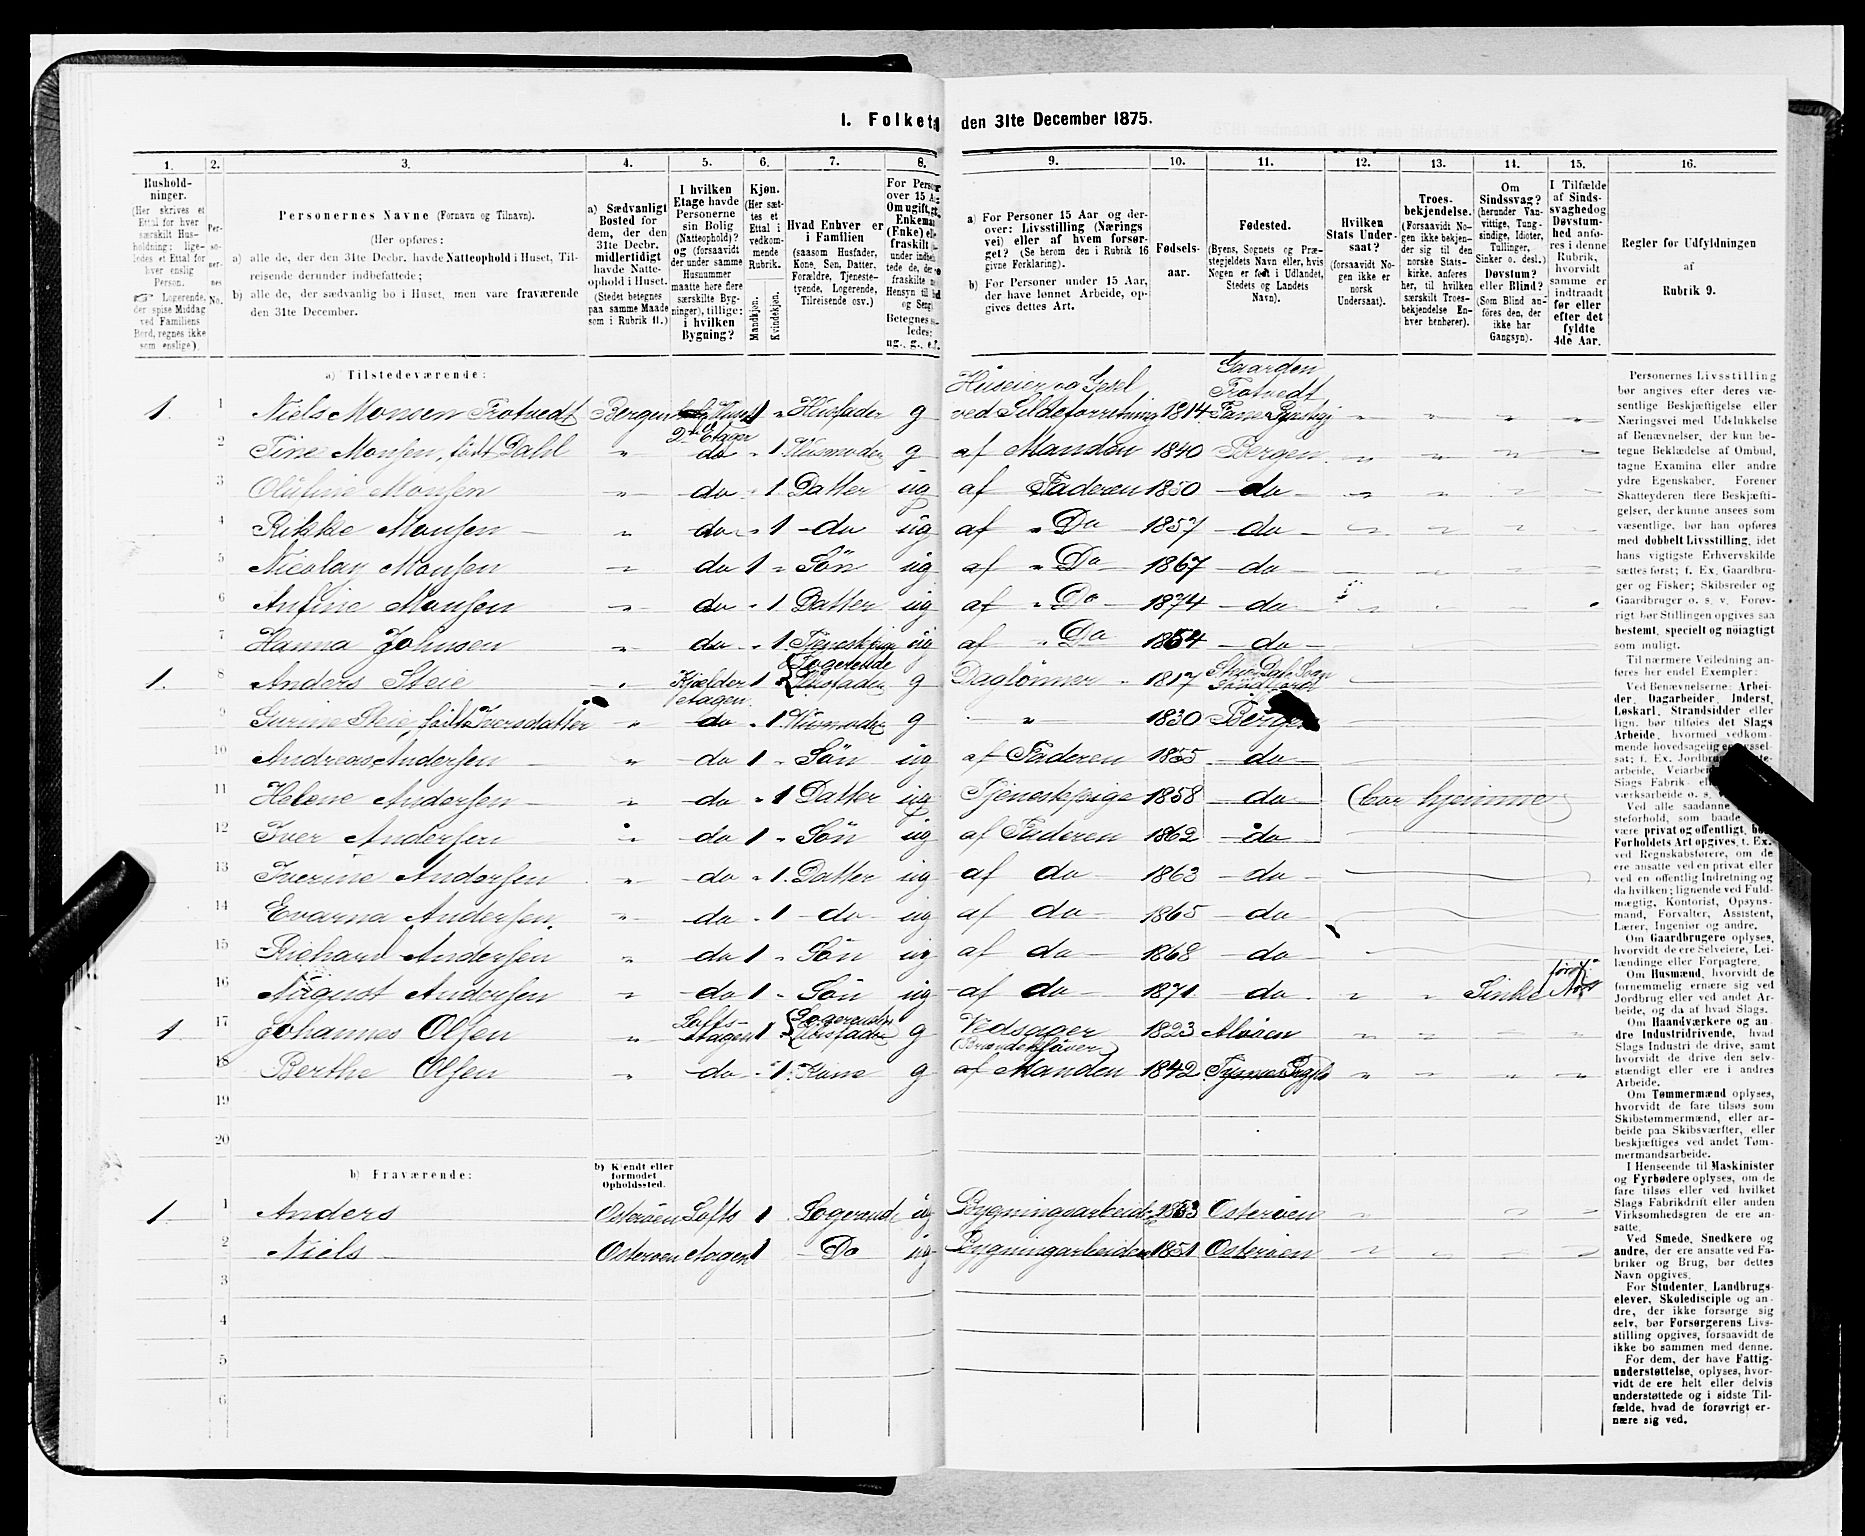 I. Folket den 31te December 1875.
1. 2. 3. 4. 5. 6. 7. 8. 9. 10. 11. 12. 13. 14. 15. 16.
Hushold-
ninger.
(Her skrives et
Ettal for hver
særskilt Hus-
holdning; lige-
ledes et Ettal for
hver enslig
Person.
☞ Logerende,
der spise Middag
ved Familiens
Bord, regnes ikke
som enslige).
Per-
so-
ner-
nes
No.
Personernes Navne (Fornavn og Tilnavn).
(Her opføres:
a) alle de, der den 31te Decbr. havde Natteophold i Huset, Til-
reisende derunder indbefattede;
b) alle de, der sædvanlig bo i Huset, men vare fraværende
den 31te December.
a) Sædvanligt
Bosted for
dem, der den
31te Decbr.
midlertidigt
havde Natte-
ophold i Huset.
(Stedet betegnes
paa samme Maade
som i Rubrik 11.)
I hvilken
Etage havde
Personerne
sin Bolig
(Natteophold)?
og (forsaavidt
der under samme
Husnummer
maatte høre flere
særskilte Byg-
ninger), tillige:
i hvilken
Bygning?
Kjøn.
(Her sæt-
tes et
Ettal i
vedkom-
mende
Rubrik.
Mandkjøn.
Kvindekjøn.
Hvad Enhver er
i Familien
(saasom Husfader,
Kone, Søn, Datter,
Forældre, Tjeneste-
tyende, Logerende,
Tilreisende osv.)
For Person
over 15 Aar
Om ugift, gi
Enkeman
(Enke) elle
fraskilt
under indbeh
tede de, der
fraskilte
Hensyn til b
og Seng
Betegnes s
ledes:
ug., g., e. f.
a) For Personer 15 Aar og der-
over: Livsstilling (Nærings
vei) eller af hvem forsør-
get? (Se herom den i Rubrik 16
givne Forklaring).
b) For Personer under 15 Aar,
der have lønnet Arbeide, op-
gives dettes Art.
Fødsels-
aar.
Fødested.
(Byens, Sognets og Præ-
stegjeldets Navn eller, hvis
Nogen er født i Udlandet,
Stedets og Landets
Navn).
Hvilken
Stats Under-
saat?
(forsaavidt No-
gen ikke er
norsk
Undersaat).
Troes-
bekjendelse.
(Forsaavidt No-
gen ikke bekjen-
der sig til den
norske Stats-
kirke, anføres
her, til hvilken
særskilt Troes-
bekjendelse En-
hver henhører).
Om
Sindssvag?
(herunder Van-
vittige, Tung-
sindige, Idioter,
Tullinger,
Sinker o. desl.)
Døvstum?
eller Blind?
(Som Blind an-
føres den, der
ikke har
Gangsyn).
I Tilfælde
af Sinds-
svaghed og
Døvstum-
hed anfø-
res i denne
Rubrik,
hvorvidt
samme er
indtraadt
før eller
efter det
fyldte
4de Aar.
Regler for Udfyldningen
af
Rubrik 9.
a) Tilstedeværende:
1. 1 Niels Monsen Trotvedt Bergen 2de Etager 1 Husfader g Huseier og Sjel ved Sildeforretning 1814 Gaarden Trotvedt Fane
2 Tine Monsen, født Dahl " do " 1 Husmoder g af Manden 1840 Bergen
3 Olufine Monsen " do " 1 Datter ug af Faderen 1850 do
4 Rikke Monsen " do " 1 do ug af Do 1857 do
5 Nicolay Monsen " do 1 " Søn ug af Do 1867 do
6 Anfine Monsen " do " 1 Datter ug af Do 1874 do
7 Hanna Johnsen " do " 1 ug af Do 1854 do
1. 8 Anders Steie " Kjælder etagen 1 Logerende Husfader g Daglønner 1817
9 Gurine Steie, født Iversdatter " do " 1 Husmoder g " 1830 Bergen
10 Andreas Andersen " do 1 " Søn ug af Faderen 1855 do
11 Helene Andersen " do " 1 Datter ug Tjenestepige 1858 do (bor hjemme)
12 Iver Andersen " do 1 " Søn ug af Faderen 1862 do
13 Iverine Andersen " do " 1 Datter ug af do 1863 do
14 Evarna Andersen " do " 1 do ug af do 1865 do
15 Richard Andersen " do 1 " Søn ug af do 1868 do
16 August Andersen " do 1 " Søn ug af do 1871 do " " Sinke
1 17 Johannes Olsen " Lofts- etagen 1 Logerende Husfader g Vedsager (Brændekløver) 1823 Aløen
18 Berthe Olsen " do " 1 Kone g af Manden 1842
19
20
b) Fraværende:
b) Kjendt eller
formodet
Opholdssted.
1. 1 Anders Osterøen Lofts 1 Logerende ug Bygningsarbeider 1853 Osterøen
2 Niels Osterøen etagen 1 Do ug Bygningarbeider 1851 Osterøen
3
4
5
6
Personernes Livsstilling
bør angives efter deres væ-
sentlige Beskjæftigelse eller
Næringsvei med Udelukkelse
af Benævnelser, der kun be-
tegne Beklædelse af Ombud,
tagne Examina eller andre
ydre Egenskaber. Forener
Skatteyderen flere Beskjæfti-
gelser, der kunne ansees som
væsentlige, bør han opføres
med dobbelt Livsstilling, idet
hans vigtigste Erhvervskilde
sættes først; f. Ex. Gaardbru-
ger og Fisker; Skibsreder og
Gaardbruger o. s. v. Forøv-
rigt bør Stillingen opgives saa
bestemt, specielt og nøiagtigt
som muligt.
Til nærmere Veiledning an-
føres her endel Exempler:
Ved Benævnelserne: Arbei
der, Dagarbeider, Inderst,
Løskarl, Strandsidder eller
lign. bør tilføies det Slags
Arbeide, hvormed vedkom-
mende hovedsagelig er syssel-
sat; f. Ex. Jordbru
arbeide, Veiarbei
Slags Fabrik-
værksarbeide o. s. v.
Ved alle saadanne
steforhold, som baade
være privat og offentligt, bør
Forholdets Art opgives, f. Ex.
ved Regnskabsførere, om de
ere ansatte ved en privat eller
ved en offentlig Indretning og
da hvilken; lignende ved Fuld-
mægtig, Kontorist, Opsyns-
mand, Forvalter, Assistent,
Lærer, Ingeniør og andre.
Om Gaardbrugere oplyses,
hvorvidt de ere Selveiere, Lei-
lændinge eller Forpagtere.
Om Husmænd, hvorvidt de
fornemmelig ernære sig ved
Jordbrug eller ved andet Ar-
beide, og da af hvad Slags.
Om Haandværkere og an
dre Industridrivende, hvad
Slags Industri de drive, samt
hvorvidt de drive den selv-
stændigt eller ere i andres
Arbeide.
Om Tømmermænd oplyses,
hvorvidt de fare tilsøs som
Skibstømmermænd, eller ar-
beide paa Skibsværfter, eller
beskjæftiges ved andet Tøm-
mermandsarbeide.
I Henseende til Maskinister
og Fyrbødere oplyses, om de
fare tilsøs eller ved hvilket
Slags Fabrikdrift eller anden
Virksomhedsgren de ere an-
satte.
Ved Smede, Snedkere og
andre, der ere ansatte ved Fa-
briker og Brug, bør dettes
Navn opgives.
For Studenter, Landbrugs-
elever, Skoledisciple og an-
dre, der ikke forsørge sig
selv, bør Forsørgerens Livs-
stilling opgives, forsaavidt de
ikke bo sammen med denne.
For dem, der have Fattig-
understøttelse, oplyses, hvor-
vidt de ere helt eller delvis
understøttede og i sidste Til-
fælde, hvad de forøvrigt er-
nære sig ved.